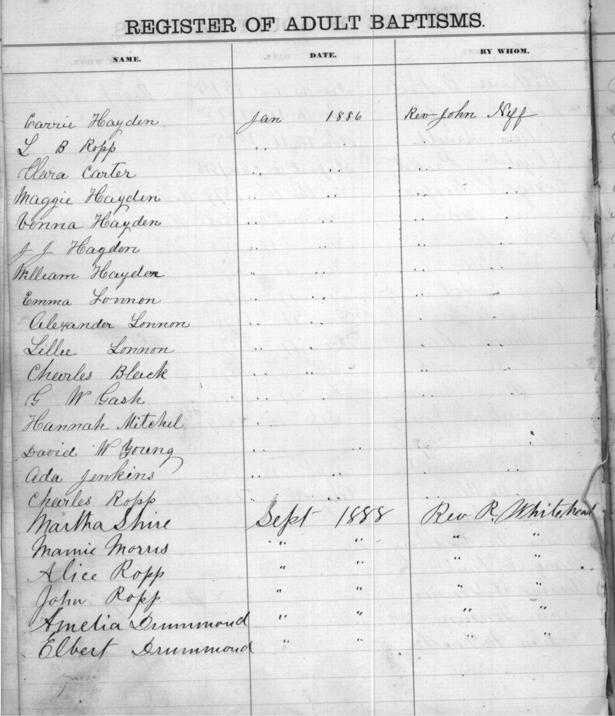 REGISTER OF ADULT BAPTISMS.
NAME. DATE. BY WHOM.
Carrie Hayden Jan 1886 Rev John Nyff
L B Ropp " " "
Clara Carter " " " "
Maggie Hayden " " " "
Vonna Hayden " " " "
J J Hayden " " " "
William Hayden " " " "
Emma Lonnon " " " "
Alexander Lonnon " " " "
Lillie Lonnon " " " "
Charles Black " " " "
G W Gash " " " "
Hannah Mitchel " "
David W Young " " "
Ada Jenkins " " " "
Charles Ropp " " " "
Martha Shire Sept 1888 Rev R. Whitehead
Mamie Morris " " " "
Alice Ropp " " " "
John Ropp " " " "
Amelia Drummond " " " "
Elbert Drummond " " " "